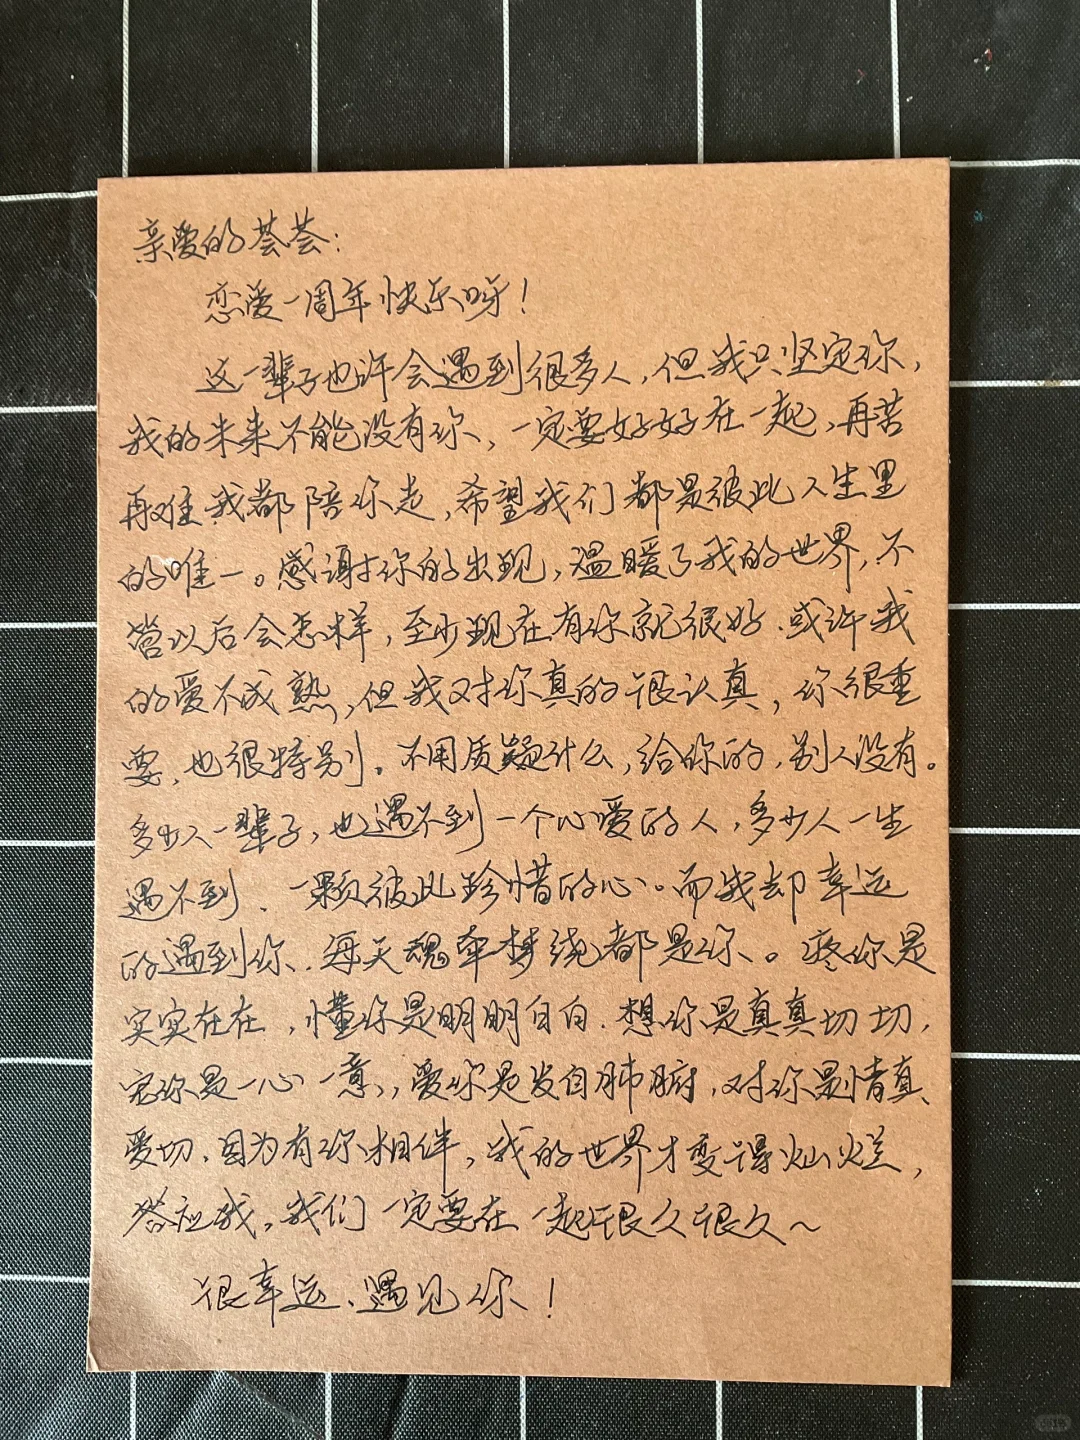 亲爱的荟荟：
恋爱一周年快乐呀！
这一辈子也许会遇到很多人，但我只坚定你，
我的未来不能没有你，一定要好好在一起，再苦
再难我都陪你走，希望我们都是彼此人生里
的唯一。感谢你的出现，温暖了我的世界，不
管以后会怎样，至少现在有你就很好．或许我
的爱不成熟，但我对你真的很认真，你很重
要，也很特别。不用质疑什么，给你的，别人没有。
多少人一辈子，也遇不到一个心爱的人，多少人一生
遇不到．一颗彼此珍惜的心。而我却幸运
的遇到你．每天魂牵梦绕都是你。疼你是
实实在在，懂你是明明白白．想你是真真切切，
宠你是一心一意，爱你是发自肺腑，对你是情真
爱切．因为有你相伴，我的世界才变得灿烂，
答应我，我们一定要在一起很久很久～
很幸运、遇见你！